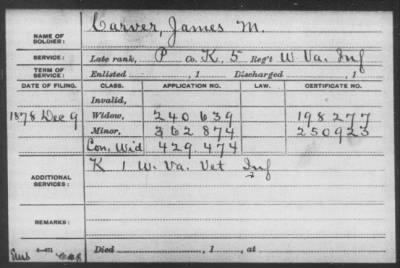 NAME OF SOLDIER: Carver, James M.
SERVICE: Late rank, P Co. K, 5 Reg't W. Va. Inf
TERM OF SERVICE: Enlisted , 1 Discharged , 1
DATE OF FILING. CLASS. APPLICATION NO. LAW. CERTIFICATE NO.
Invalid,
1878 Dec 9 Widow, 240 639 198277
Minor, 362 874 250923
Con. Wid 429.474
ADDITIONAL SERVICES: K 1 W. Va. Vet Inf
REMARKS:
Died , 1 , at